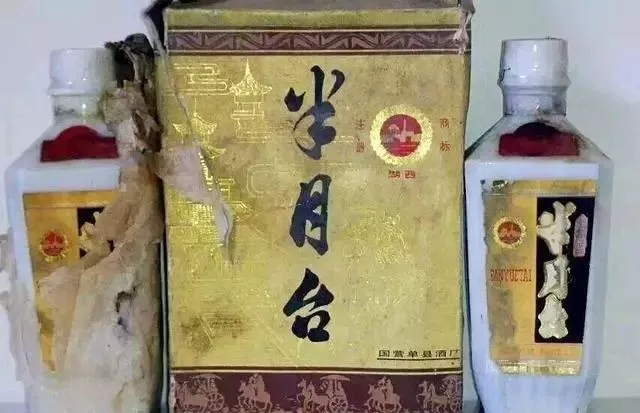 半月台
注册
商标
湖西
国营单县酒厂
半月台
半月台
BANYUETAI